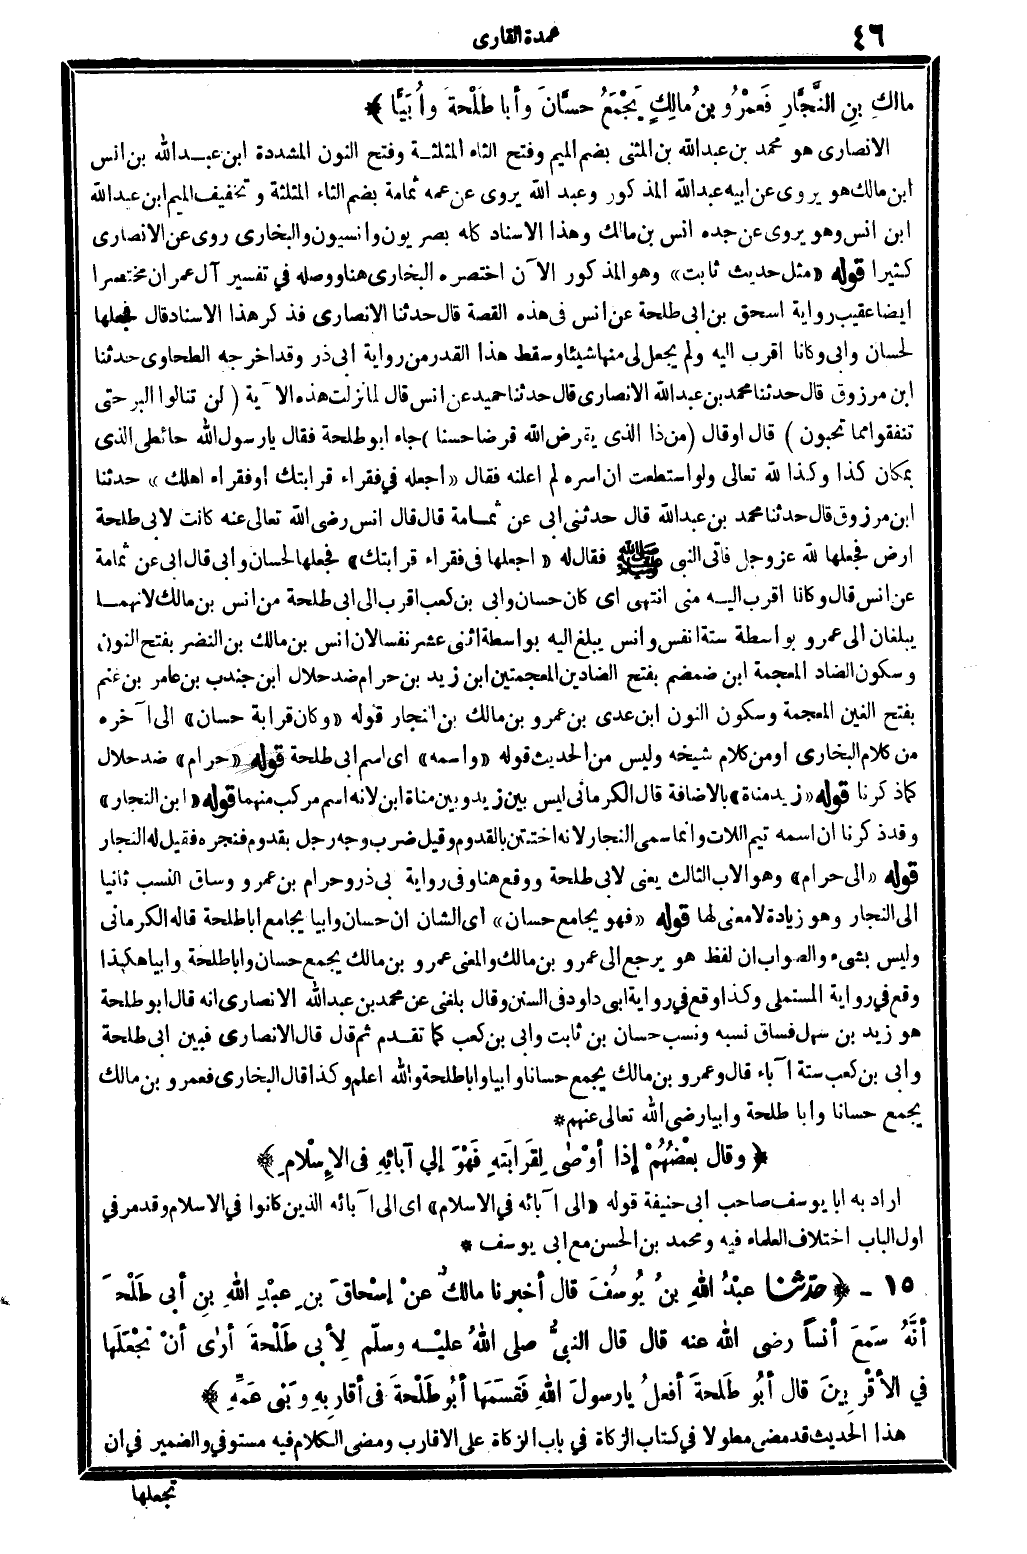 ٤٦
عمدة القارى
مالكِ بنِ النَّجَّارِ فَعَمْرُو بنُ مالِكٍ يَجْمَعُ حسَّانَ وأبا طَلْحةَ وأُبَيًّا ﴾
الانصارى هو محمد بن عبدالله بن المثنى بضم الميم وفتح الثاء المثلثة وفتح النون المشددة ابن عبدالله بن انس
ابن مالك هو يروى عن ابيه عبدالله المذكور وعبد الله يروى عن عمه ثمامة بضم الثاء المثلثة وتخفيف الميم ابن عبدالله
ابن انس وهو يروى عن جده انس بن مالك وهذا الاسناد كله بصريون وانسيون والبخارى روى عن الانصارى
كثيرا قوله «مثل حديث ثابت» وهو المذكور الآن اختصره البخارى هنا ووصله في تفسير آل عمران مختصرا
ايضا عقيب رواية اسحق بن ابى طلحة عن انس فى هذه القصة قال حدثنا الانصارى فذكر هذا الاسناد قال فجعلها
لحسان وابى وكانا اقرب اليه ولم يجعل لى منها شيئا وسقط هذا القدر من رواية ابى ذر وقد اخرجه الطحاوى حدثنا
ابن مرزوق قال حدثنا محمد بن عبدالله الانصارى قال حدثنا حميد عن انس قال لما نزلت هذه الآية ( لن تنالوا البر حتى
تنفقوا مما تحبون ) قال او قال (من ذا الذى يقرض الله قرضا حسنا ) جاء ابو طلحة فقال يارسول الله حائطى الذى
بمكان كذا وكذا لله تعالى ولو استطعت ان اسره لم اعلنه فقال «اجعله في فقراء قرابتك او فقراء اهلك» حدثنا
ابن مرزوق قال حدثنا محمد بن عبدالله قال حدثنى ابى عن ثمامة قال قال انس رضى الله تعالى عنه كانت لابى طلحة
ارض فجعلها لله عز وجل فاتى النبى ﷺ فقال له « اجعلها فى فقراء قرابتك» فجعلها لحسان وأبى قال ابى عن ثمامة
عن انس قال وكانا اقرب اليه منى انتهى اى كان حسان وابى بن كعب اقرب الى ابى طلحة من انس بن مالك لانهما
يبلغان الى عمرو بواسطة ستة انفس وانس يبلغ اليه بواسطة اثنى عشر نفسا لان انس بن مالك بن النضر بفتح النون
وسكون الضاد المعجمة ابن ضمضم بفتح الضادين المعجمتين ابن زيد بن حرام ضد حلال ابن جندب بن عامر بن غنم
بفتح الغين المعجمة وسكون النون ابن عدى بن عمرو بن مالك بن النجار قوله «وكان قرابة حسان» الى آخره
من كلام البخارى او من كلام شيخه وليس من الحديث قوله «واسمه» اى اسم ابى طلحة قوله «حرام» ضد حلال
كما ذكرنا قوله «زيد مناة» بالاضافة قال الكرمانى ليس بين زيد وبين مناة ابن لانه اسم مركب منهما قوله «ابن النجار»
وقد ذكرنا ان اسمه تيم اللات وانما سمى النجار لانه اختتن بالقدوم وقيل ضرب وجه رجل بقدوم فنجره فقيل له النجار
قوله «الى حرام» وهو الاب الثالث يعنى لابى طلحة ووقع هنا وفى رواية بى ذر وحرام بن عمرو وساق النسب ثانيا
الى النجار وهو زيادة لا معنى لها قوله «فهو يجامع حسان» اى الشان ان حسان وابيا يجامع ابا طلحة قاله الكرمانى
وليس بشىء والصواب ان لفظ هو يرجع الى عمرو بن مالك والمعنى عمرو بن مالك يجمع حسان وابا طلحة وابيا هكذا
وقع في رواية المستملى وكذا وقع في رواية ابى داود فى السنن وقال بلغنى عن محمد بن عبدالله الانصارى انه قال ابو طلحة
هو زيد بن سهل فساق نسبه ونسب حسان بن ثابت وابى بن كعب كما تقدم ثم قال قال الانصارى فبين ابى طلحة
وابى بن كعب ستة آباء قال وعمرو بن مالك يجمع حسانا وابيا وابا طلحة والله اعلم وكذا قال البخارى فعمرو بن مالك
يجمع حسانا وابا طلحة وابيا رضى الله تعالى عنهم *
﴿ وقال بعْضُهُمْ إذا أوْصٰى لِقَرَابَتِهِ فَهْوَ إلى آبائِهِ فى الإسْلامِ ﴾
اراد به ابا يوسف صاحب ابى حنيفة قوله «الى آبائه في الاسلام» اى الى آبائه الذين كانوا في الاسلام وقد مر في
اول الباب اختلاف العلماء فيه ومحمد بن الحسن مع ابى يوسف *
١٥ - ﴿ حدّثنا عبْدُ اللهِ بنُ يُوسُفَ قال أخبرنا مالكٌ عنْ إسْحاقَ بنِ عبْدِ اللهِ بنِ أبى طَلْحَةَ
أنَّهُ سَمَعَ أنساً رضى الله عنه قال قال النبىُّ صلى اللهُ عليْه وسلّم لِأبى طلْحةَ أرٰى أنْ تَجْعَلَهَا
في الأقْرَبِينَ قال أبُو طَلْحَةَ أفعلُ يارسولَ اللهِ فَقَسَمَهَا أبُو طَلْحَةَ فى أقارِبِهِ وبَنى عَمِّهِ ﴾
هذا الحديث قد مضى مطولا في كتاب الزكاة في باب الزكاة على الاقارب ومضى الكلام فيه مستوفي والضمير في ان
تجعلها